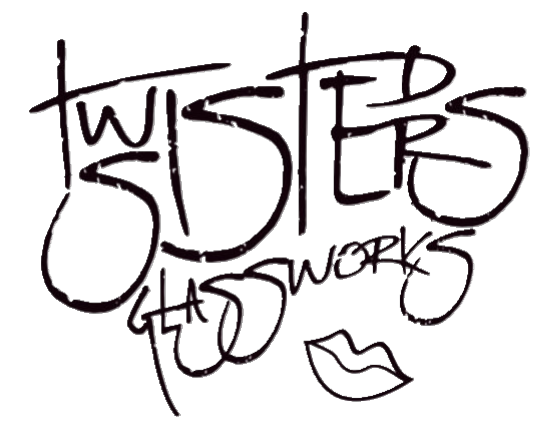 TWISTED
SISTERS
GLASSWORKS